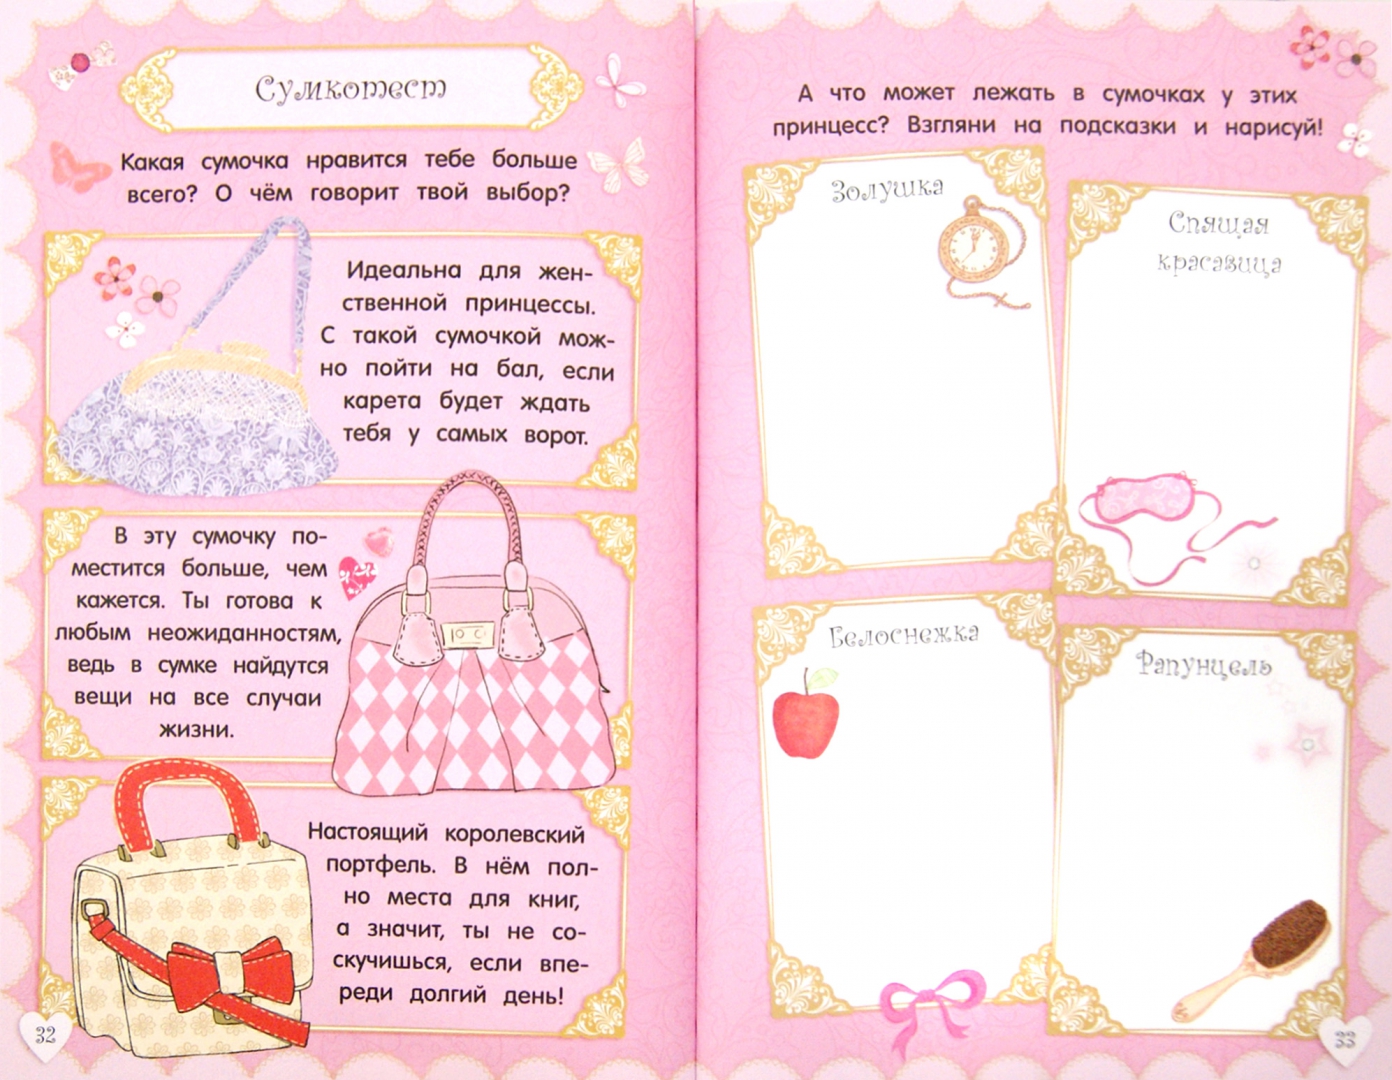 Сумкотест
Какая сумочка нравится тебе больше
всего? О чём говорит твой выбор?
Идеальна для жен-
ственной принцессы.
С такой сумочкой мож-
но пойти на бал, если
карета будет ждать
тебя у самых ворот.
В эту сумочку по-
местится больше, чем
кажется. Ты готова к
любым неожиданностям,
ведь в сумке найдутся
вещи на все случаи
жизни.
Настоящий королевский
портфель. В нём пол-
но места для книг,
а значит, ты не со-
скучишься, если впе-
реди долгий день!
32
А что может лежать в сумочках у этих
принцесс? Взгляни на подсказки и нарисуй!
Золушка
Спящая
красавица
Белоснежка
Рапунцель
33